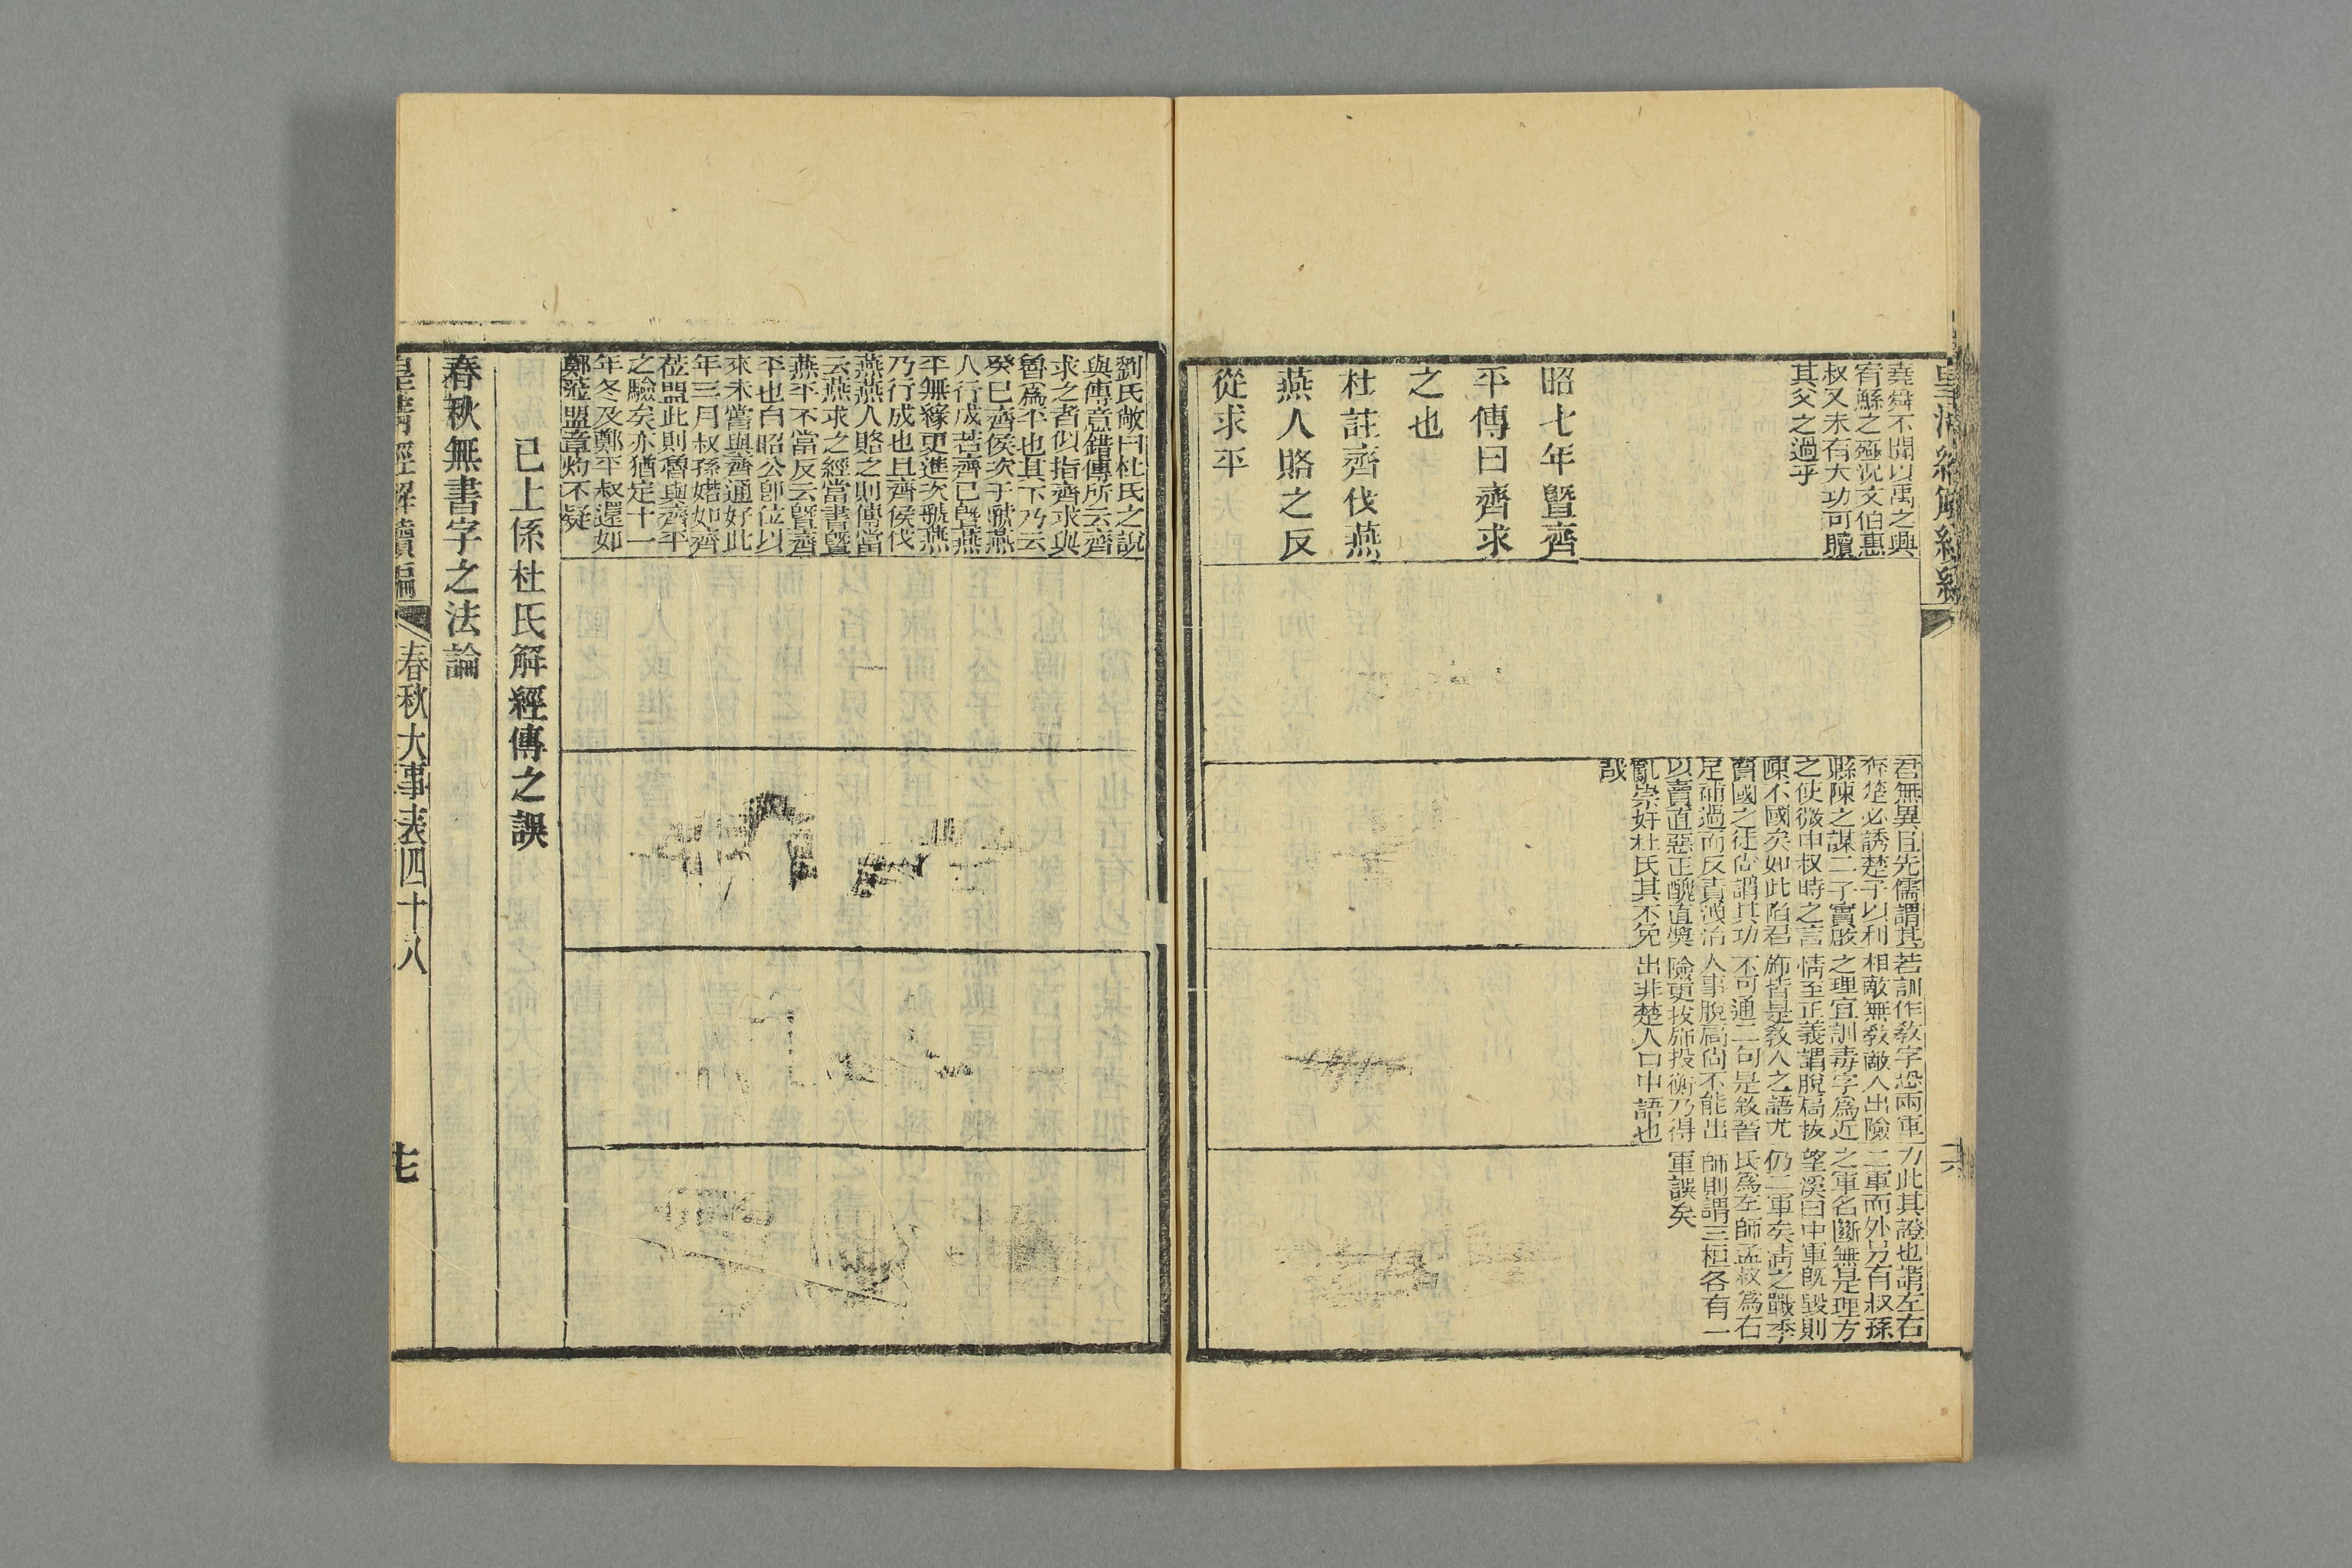 皇清經解續編
堯舜不聞以禹之興
宥鯀之殛況文伯惠
叔又未有大功可贖
其父之過乎
昭七年暨齊
平傳曰齊求
之也
杜註齊伐燕
燕人賂之反
從求平
君無異且先儒謂其
奔楚必誘楚子以利
縣陳之謀二子實啟
之使微申叔時之言
陳不國矣如此陷君
賣國之徒尙謂其功
足補過而反責洩冶
以賣直惡正醜直獎
亂崇奸杜氏其不免
哉
若訓作敎字恐兩軍
相敵無敎敵人出險
之理宜訓毒字爲近
情至正義謂脫扃拔
旆皆是敎人之語尤
不可通二句是敘晉
人事脫扃尙不能出
險更拔旆投衡乃得
出非楚人口中語也
力此其證也謂左右
二軍而外另有叔孫
之軍名斷無是理方
望溪曰中軍旣毀則
仍二軍矣淸之戰季
氏爲左師孟叔爲右
師則謂三桓各有一
軍誤矣
劉氏敞曰杜氏之說
與傳意錯傳所云齊
求之者似指齊求與
魯爲平也其下乃云
癸巳齊侯次于虢燕
人行成若齊已暨燕
平無緣更進次虢燕
乃行成也且齊侯伐
燕燕人賂之則傳當
云燕求之經當書暨
燕平不當反云暨齊
平也自昭公卽位以
來未嘗與齊通好此
年三月叔孫婼如齊
莅盟此則魯與齊平
之驗矣亦猶定十一
年冬及鄭平叔還如
鄭莅盟章灼不疑
已上係杜氏解經傳之誤
春秋無書字之法論
皇清經解續編
春秋大事表四十八